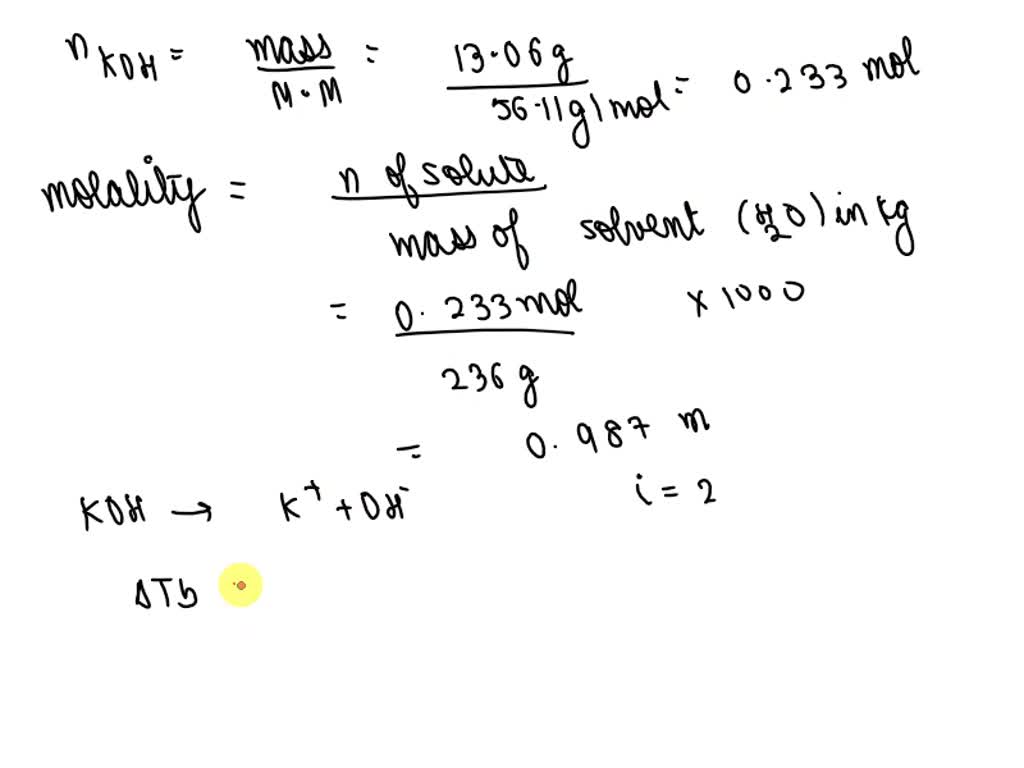 n KOH = mass / M·M = 13.06g / 56.11g/mol = 0.233 mol
molality = n of solute / mass of solvent (H2O) in kg
= 0.233 mol / 236 g × 1000
= 0.987 m
KOH → K+ + OH- i = 2
ΔTb